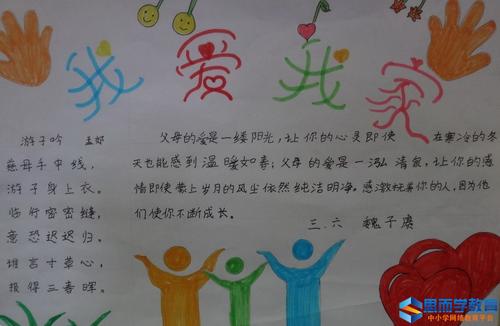 我爱我家
游子吟 孟郊
慈母手中线,
游子身上衣。
临行密密缝,
意恐迟迟归。
谁言寸草心,
报得三春晖。
父母的爱是一缕阳光,让你的心灵即使在寒冷的冬
天也能感到温暖如春;父母的爱是一泓清泉,让你的感
情即使蒙上岁月的风尘依然纯洁明净。感激抚养你的人,因为他
们使你不断成长。
三.六 魏子赓
思而学教育
中小学网络教育平台